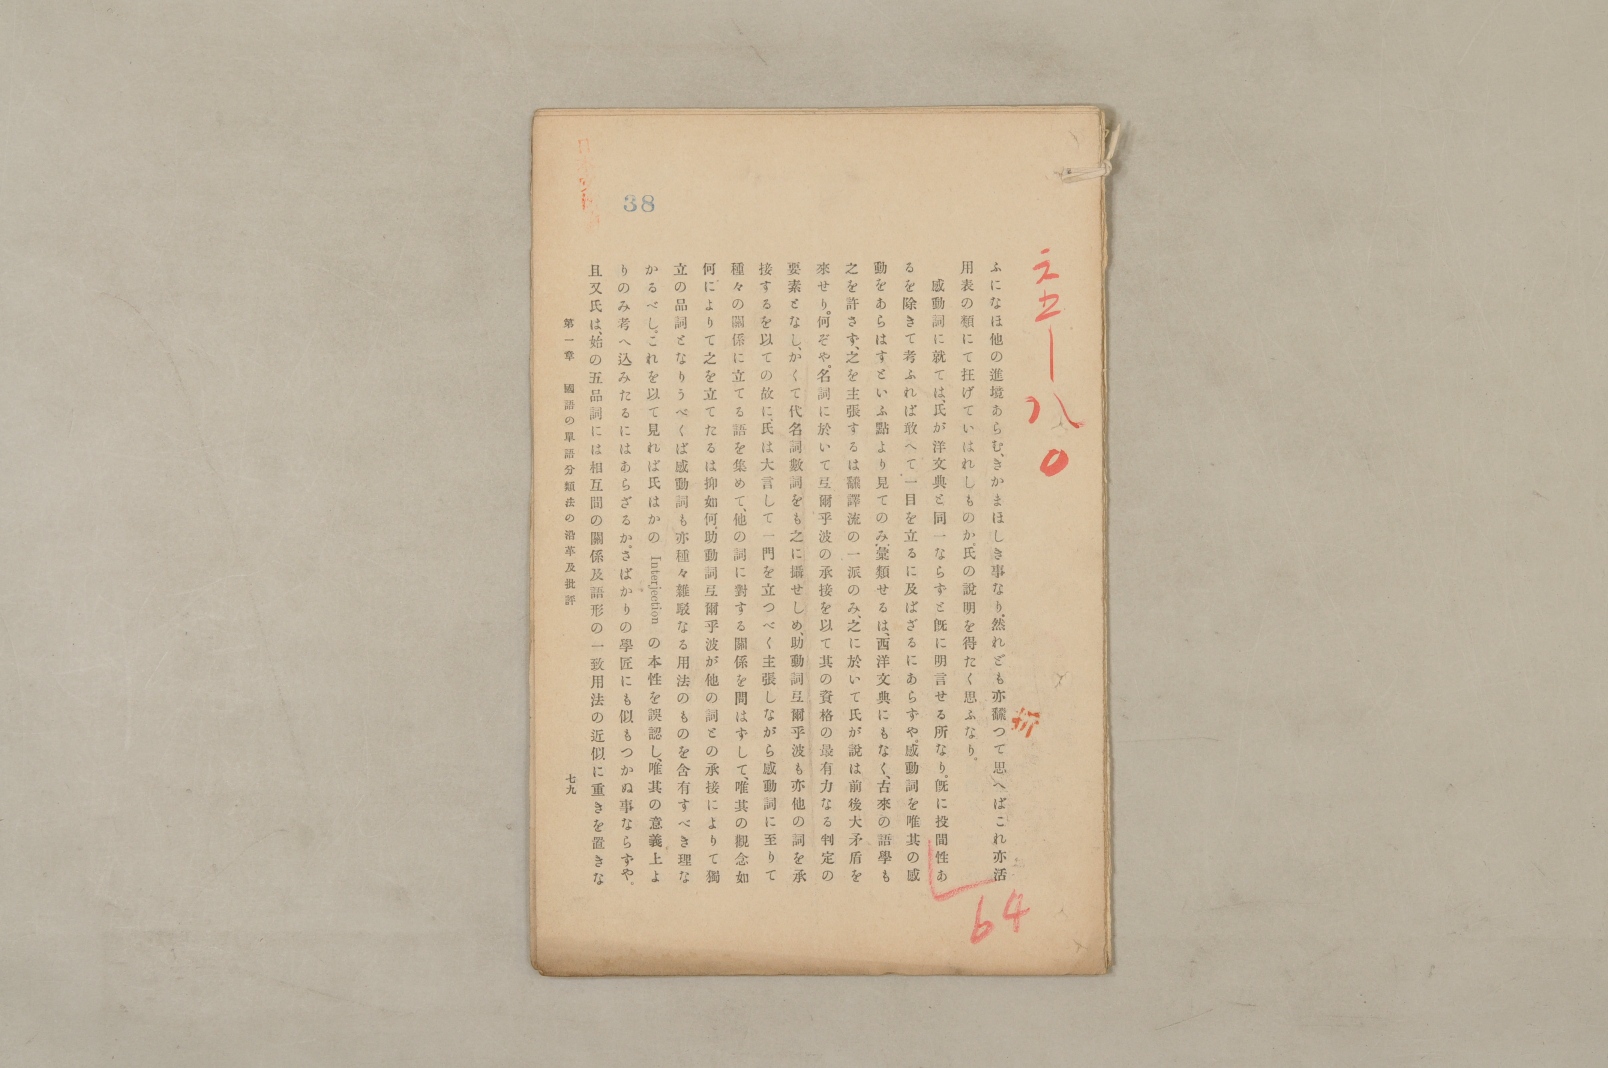 38
ふになほ他の進境あらむ、きかまほしき事なり、然れども亦飜つて思へばこれ亦活
用表の類にて抂げていはれしものか、氏の說明を得たく思ふなり。
感動詞に就ては、氏が洋文典と同一ならずと旣に明言せる所なり。旣に投間性あ
るを除きて考ふれば敢へて一目を立るに及ばざるにあらずや。感動詞を唯其の感
動をあらはすといふ點より見てのみ、彙類せるは、西洋文典にもなく、古來の語學も
之を許さず、之を主張するは飜譯流の一派のみ、之に於いて氏が說は前後大矛盾を
來せり。何ぞや。名詞に於いて弖爾乎波の承接を以て其の資格の最有力なる判定の
要素となし、かくて代名詞數詞をも之に攝せしめ、助動詞弖爾乎波も亦他の詞を承
接するを以ての故に、氏は大言して一門を立つべく主張しながら感動詞に至りて
種々の關係に立てる語を集めて、他の詞に對する關係を問はずして、唯其の觀念如
何によりて之を立てたるは抑如何、助動詞弖爾乎波が他の詞との承接によりて獨
立の品詞となりうべくば感動詞も亦種々雜駁なる用法のものを含有すべき理な
かるべし。これを以て見れば氏はかの Interjection の本性を誤認し、唯其の意義上よ
りのみ考へ込みたるにはあらざるか。さばかりの學匠にも似もつかぬ事ならずや。
且又氏は、始の五品詞には相互間の關係及語形の一致用法の近似に重きを置きな
第一章 國語の單語分類法の沿革及批評
七九
64